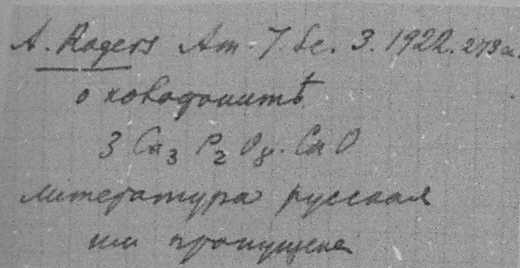 A. Rogers Am. J. Sc. 3. 1922. 273
о
3 Ca₃ P₂ O₈. CaO
литература русская
им пропущена